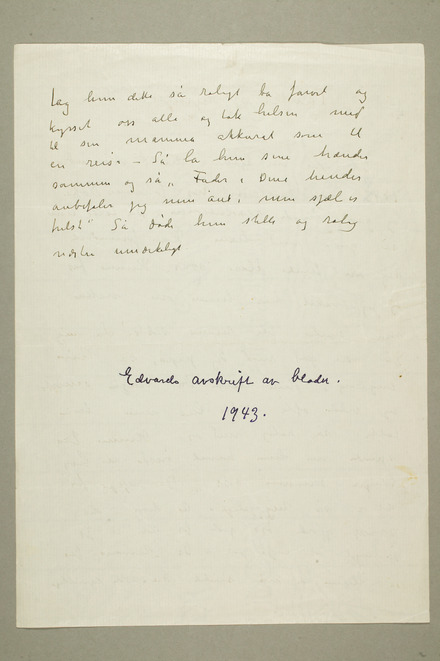 tog hun dette så roligt ba farvel og
kysset oss alle og tok hilsen med
til sin mamma akkurat som til
en reise – Så la hun sine hænder
sammen og så „Fader i Dine hender
anbefaler jeg min ånd i min sjæl
Så døde hun stille og rolig
næsten umerkeligt
Edvards avskrift av blader.
1943.